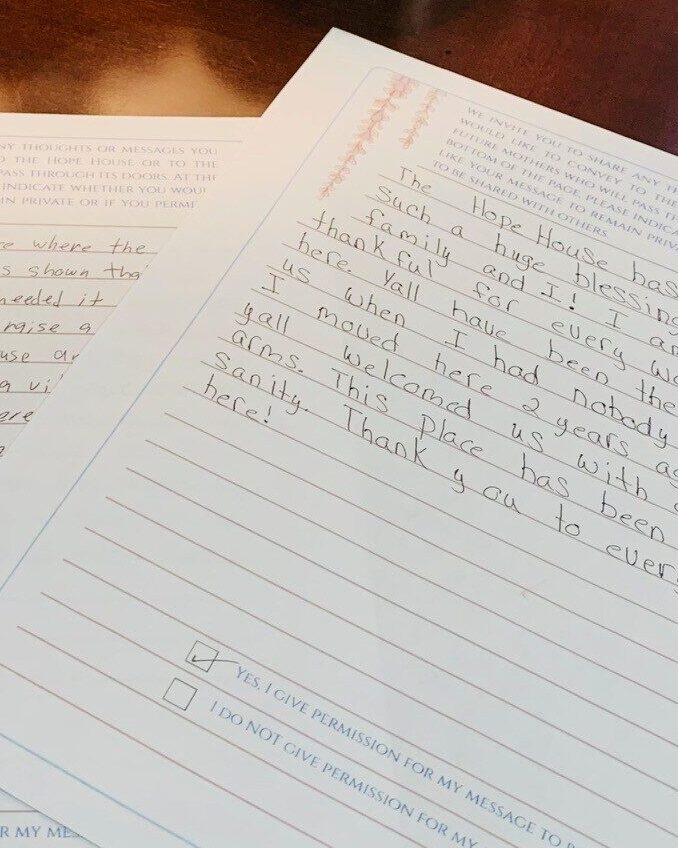 NY THOUGHTS OR MESSAGES YOU
O THE HOPE HOUSE OR TO THE
PASS THROUGH ITS DOORS. AT THE
INDICATE WHETHER YOU WOU
IN PRIVATE OR IF YOU PERMI
where the
s shown tha
needed it
raise a
use ar
a vi
R MY MES
WE INVITE YOU TO SHARE ANY TH
WOULD LIKE TO CONVEY TO THE
FUTURE MOTHERS WHO WILL PASS TH
BOTTOM OF THE PAGE, PLEASE INDICA
LIKE YOUR MESSAGE TO REMAIN PRIVA
TO BE SHARED WITH OTHERS.
The Hope House has
Such a huge blessing
family and I! I am
thankful for every wo
here. Yall have been the
us when I had nobody
I moved here 2 years ag
yall welcomed us with
arms. This place has been
Sanity. Thank you to every
here!
YES, I GIVE PERMISSION FOR MY MESSAGE TO B
I DO NOT GIVE PERMISSION FOR MY